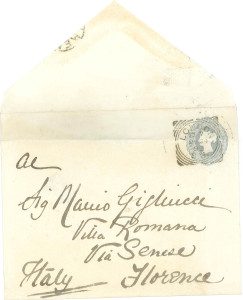 al
Sig Mario Gigliucci
Villa Romana
Via Senese
Italy Florence